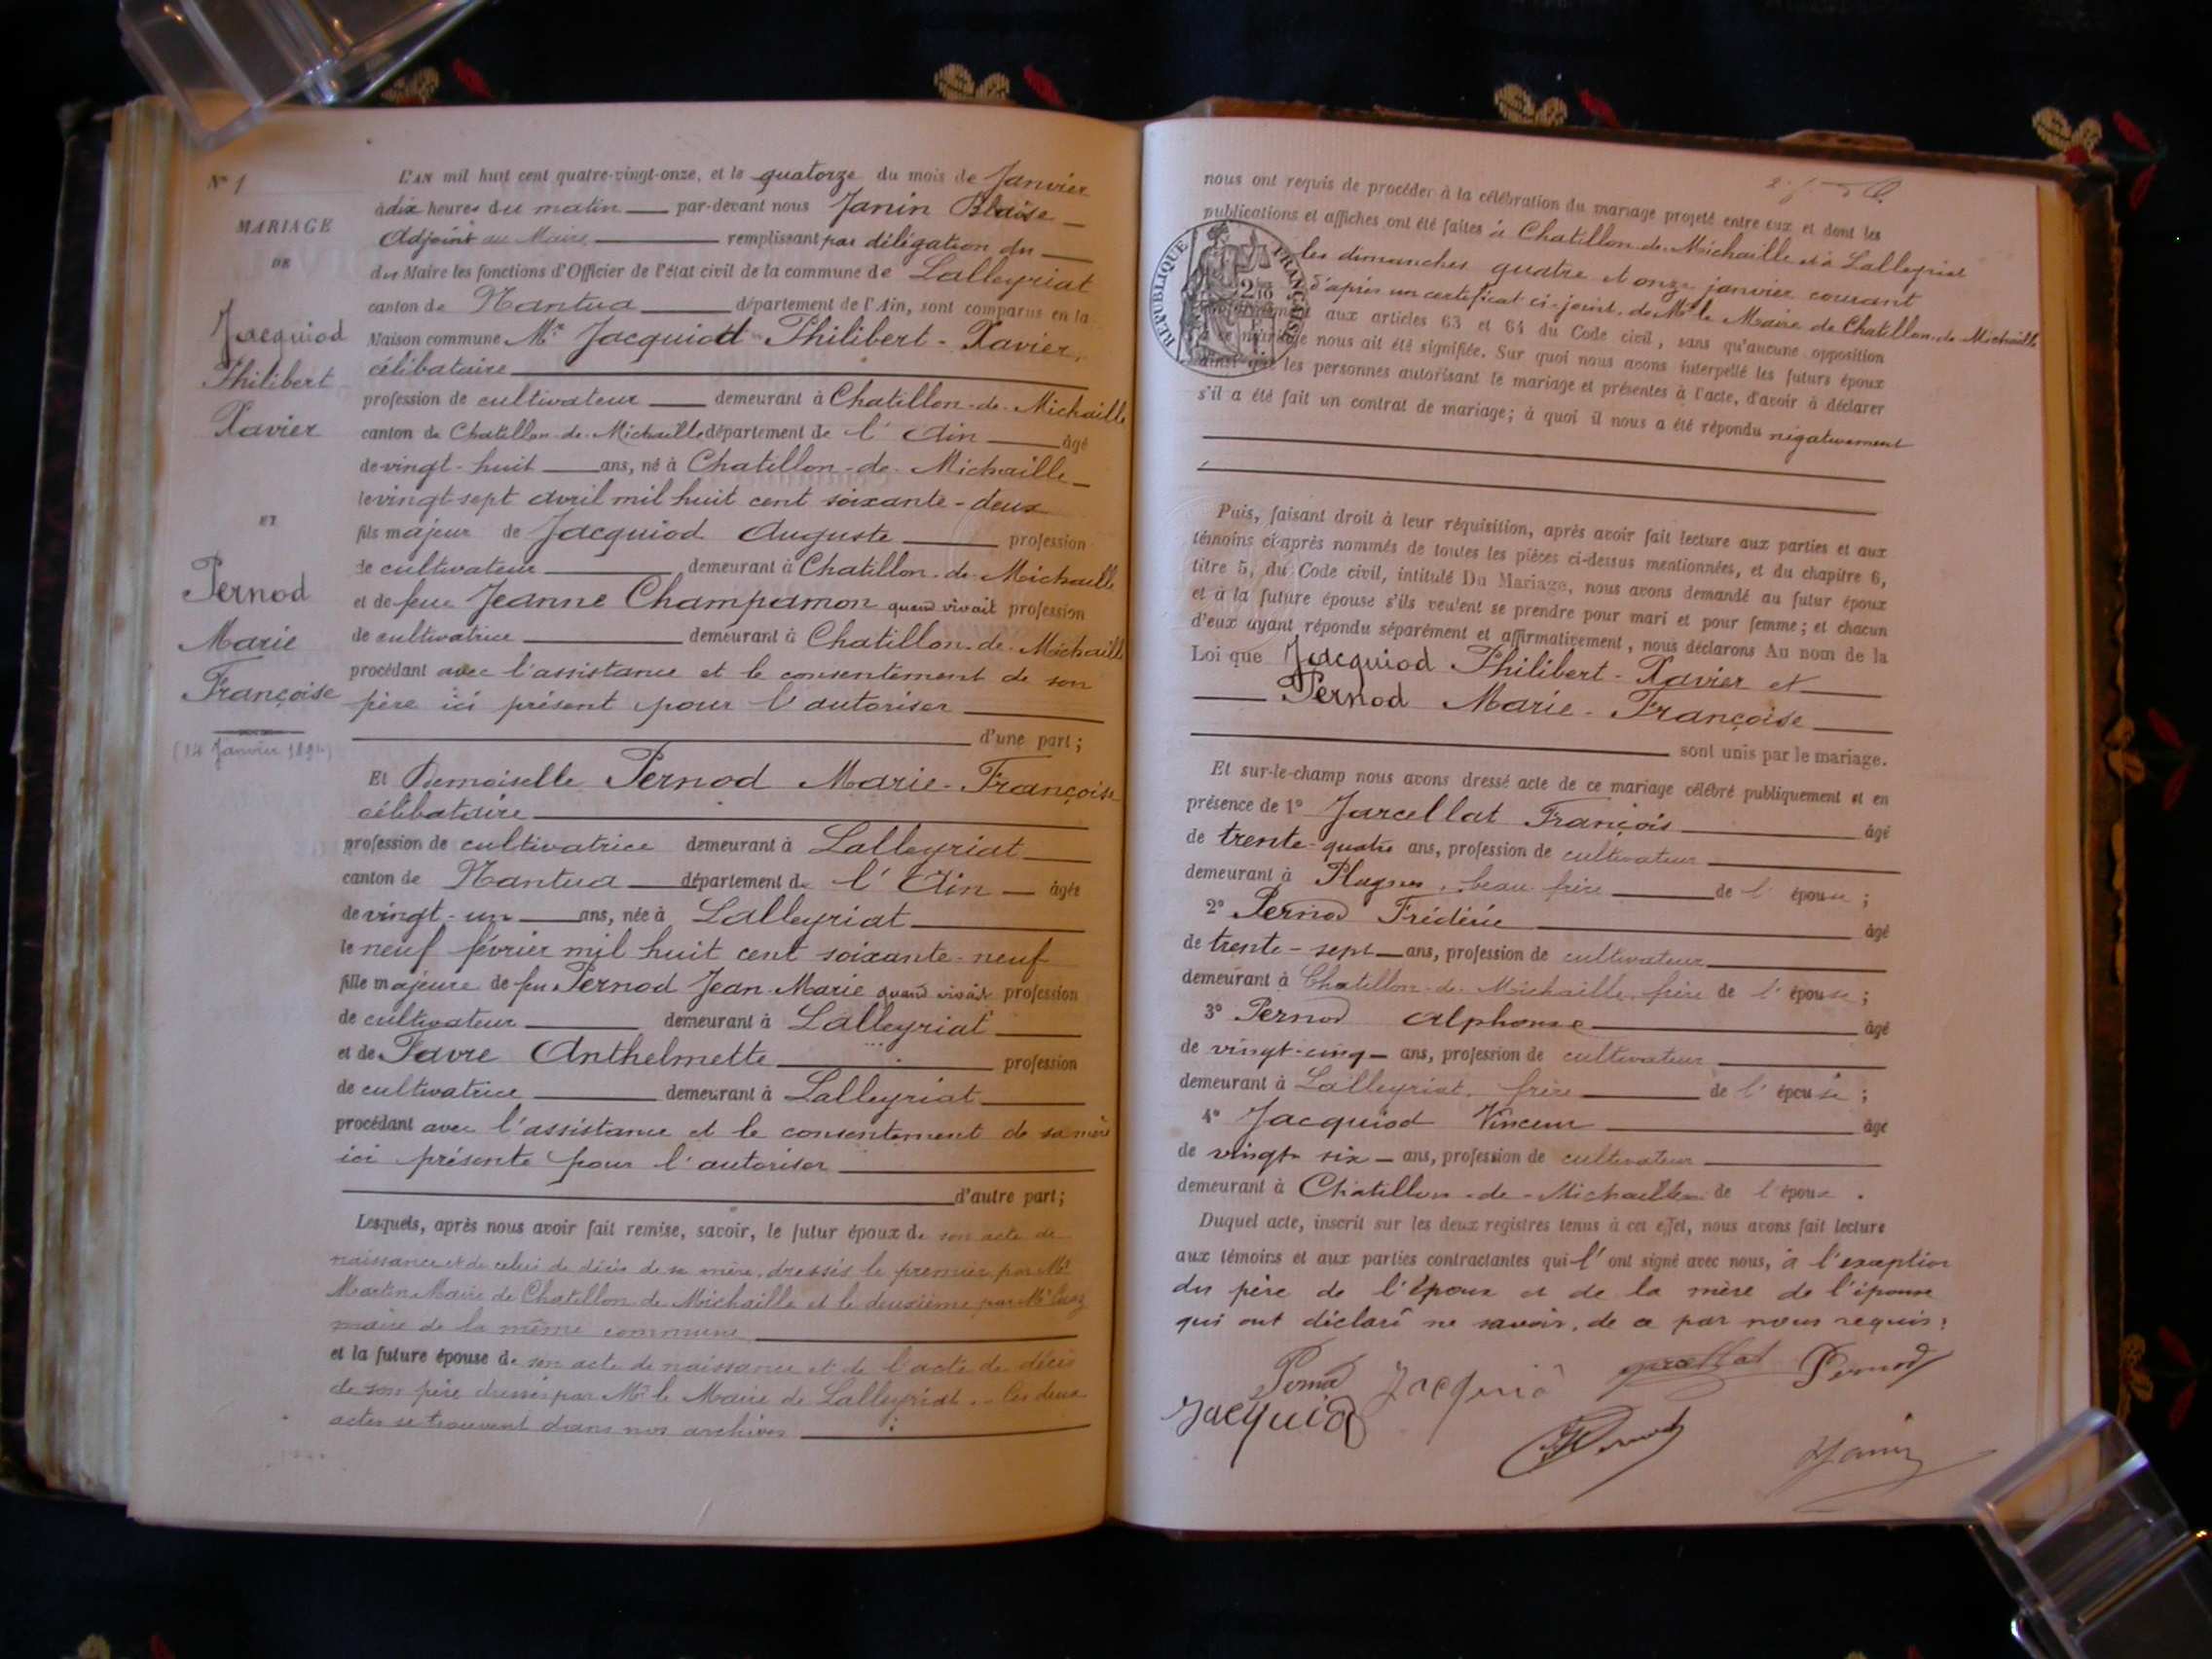 N° 1
MARIAGE
DE
Jacquiod
Philibert
Xavier
ET
Pernod
Marie
Françoise
(14 Janvier 1891)
L'AN mil huit cent quatre-vingt-onze, et le quatorze du mois de Janvier
à dix heures du matin par-devant nous Janin Blaise
Adjoint au Maire remplissant par délégation du
du Maire les fonctions d'Officier de l'état civil de la commune de Lalleyriat
canton de Nantua département de l'Ain, sont comparus en la
Maison commune Mr Jacquiod Philibert-Xavier,
célibataire
profession de cultivateur demeurant à Chatillon-de-Michaille
canton de Chatillon-de-Michaille département de l'Ain âgé
de vingt-huit ans, né à Chatillon-de-Michaille
le vingt-sept avril mil huit cent soixante-deux
fils majeur de Jacquiod Auguste profession
de cultivateur demeurant à Chatillon-de-Michaille
et de feue Jeanne Champamon quand vivait profession
de cultivatrice demeurant à Chatillon-de-Michaille
procédant avec l'assistance et le consentement de son
père ici présent pour l'autoriser
d'une part;
Et Demoiselle Pernod Marie-Françoise
célibataire
profession de cultivatrice demeurant à Lalleyriat
canton de Nantua département de l'Ain âgée
de vingt-un ans, née à Lalleyriat
le neuf février mil huit cent soixante-neuf
fille majeure de feu Pernod Jean-Marie quand vivait profession
de cultivateur demeurant à Lalleyriat
et de Favre Anthelmette profession
de cultivatrice demeurant à Lalleyriat
procédant avec l'assistance et le consentement de sa mère
ici présente pour l'autoriser
d'autre part;
Lesquels, après nous avoir fait remise, savoir, le futur époux de son acte de
naissance et de celui de décès de sa mère, dressés le premier par Mr
Martin Maire de Chatillon-de-Michaille et le deuxième par Mr
maire de la même commune
et la future épouse de son acte de naissance et de l'acte de décès
de son père dressés par Mr le Maire de Lalleyriat. Ces deux
actes se trouvent dans nos archives
nous ont requis de procéder à la célébration du mariage projeté entre eux et dont les
publications et affiches ont été faites à Chatillon-de-Michaille et à Lalleyriat
les dimanches quatre et onze janvier courant
d'après un certificat ci-joint, de Mr le Maire de Chatillon-de-Michaille
RÉPUBLIQUE FRANÇAISE
aux articles 63 et 64 du Code civil, sans qu'aucune opposition
mariage nous ait été signifiée. Sur quoi nous avons interpellé les futurs époux
ainsi que les personnes autorisant le mariage et présentes à l'acte, d'avoir à déclarer
s'il a été fait un contrat de mariage; à quoi il nous a été répondu négativement
Puis, faisant droit à leur réquisition, après avoir fait lecture aux parties et aux
témoins ci-après nommés de toutes les pièces ci-dessus mentionnées, et du chapitre 6,
titre 5, du Code civil, intitulé Du Mariage, nous avons demandé au futur époux
et à la future épouse s'ils veulent se prendre pour mari et pour femme; et chacun
d'eux ayant répondu séparément et affirmativement, nous déclarons Au nom de la
Loi que Jacquiod Philibert-Xavier et
Pernod Marie-Françoise
sont unis par le mariage.
Et sur-le-champ nous avons dressé acte de ce mariage célébré publiquement et en
présence de 1° Jarcellat François âgé
de trente-quatre ans, profession de cultivateur
demeurant à Plagnes, beau-frère de l'épouse;
2° Pernod Frédéric âgé
de trente-sept ans, profession de cultivateur
demeurant à Chatillon-de-Michaille, frère de l'épouse;
3° Pernod Alphonse âgé
de vingt-cinq ans, profession de cultivateur
demeurant à Lalleyriat, frère de l'épouse;
4° Jacquiod Vincent âgé
de vingt-six ans, profession de cultivateur
demeurant à Chatillon-de-Michaille de l'époux.
Duquel acte, inscrit sur les deux registres tenus à cet effet, nous avons fait lecture
aux témoins et aux parties contractantes qui l'ont signé avec nous, à l'exception
du père de l'époux et de la mère de l'épouse
qui ont déclaré ne savoir, de ce par nous requis.
Pernod Jacquiod Jarcellat Pernod
Jacquiod
Pernod Janin